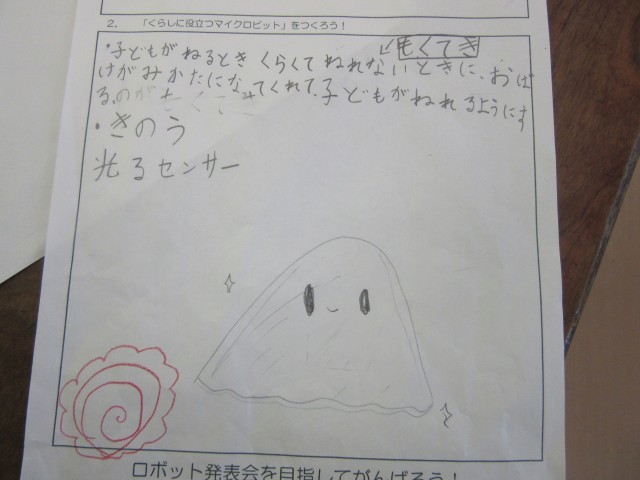 2. 「くらしに役立つマイクロビット」をつくろう！
もくてき
・子どもがねるとき くらくてねれないときに、おば
けがみかたになってくれて、子どもがねれるようにす
る。のがもくてき
・きのう
光るセンサー
ロボット発表会を目指してがんばろう！